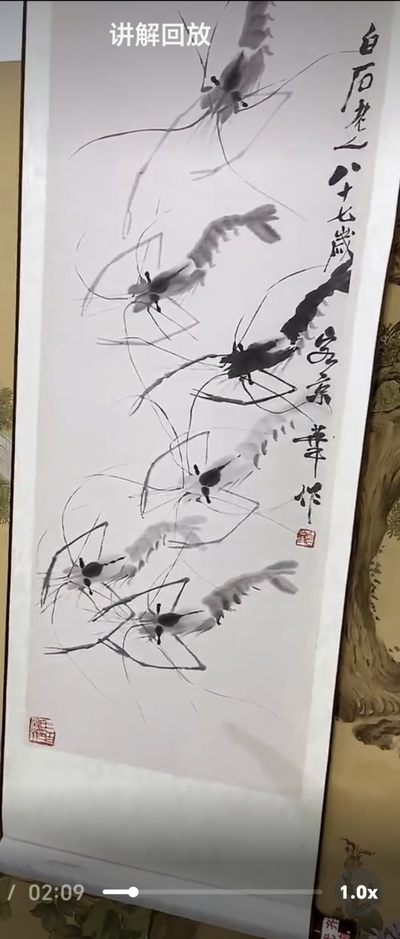 讲解回放
白石老人八十七岁客京華作
/ 02:09
1.0x